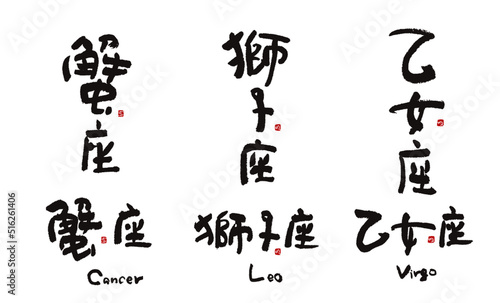 蟹座
獅子座
乙女座
蟹座
獅子座
乙女座
Cancer
Leo
Virgo
Adobe Stock
#516261406